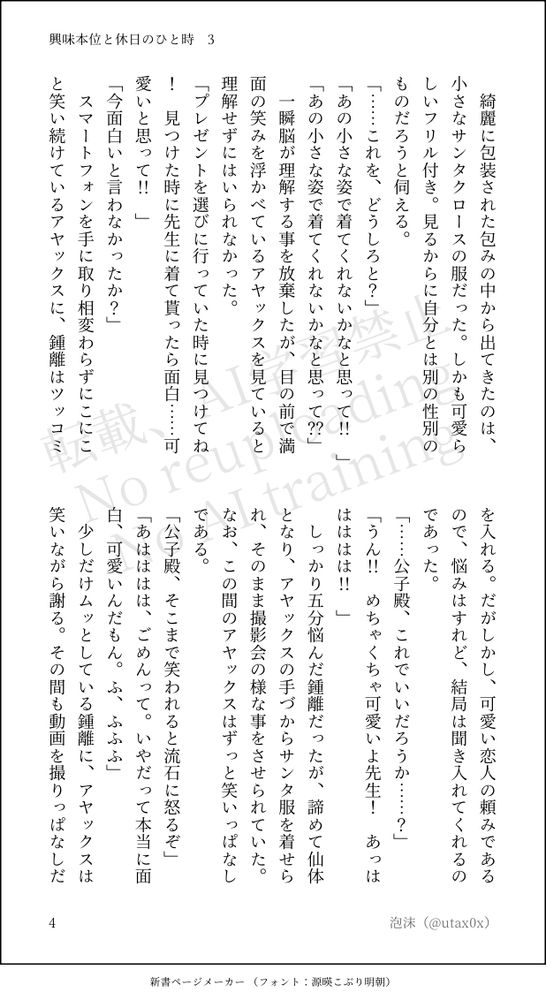 興味本位と休日のひと時　3
　綺麗に包装された包みの中から出てきたのは、
小さなサンタクロースの服だった。しかも可愛ら
しいフリル付き。見るからに自分とは別の性別の
ものだろうと伺える。
「……これを、どうしろと？」
「あの小さな姿で着てくれないかなと思って!!　」
「あの小さな姿で着てくれないかなと思って??」
　一瞬脳が理解する事を放棄したが、目の前で満
面の笑みを浮かべているアヤックスを見ていると
理解せずにはいられなかった。
「プレゼントを選びに行っていた時に見つけてね
！　見つけた時に先生に着て貰ったら面白……可
愛いと思って!!　」
「今面白いと言わなかったか？」
　スマートフォンを手に取り相変わらずにこにこ
と笑い続けているアヤックスに、鍾離はツッコミ
を入れる。だがしかし、可愛い恋人の頼みである
ので、悩みはすれど、結局は聞き入れてくれるの
であった。
「……公子殿、これでいいだろうか……？」
「うん!!　めちゃくちゃ可愛いよ先生！　あっは
はははは!!　」
　しっかり五分悩んだ鍾離だったが、諦めて仙体
となり、アヤックスの手づからサンタ服を着せら
れ、そのまま撮影会の様な事をさせられていた。
なお、この間のアヤックスはずっと笑いっぱなし
である。
「公子殿、そこまで笑われると流石に怒るぞ」
「あはははは、ごめんって。いやだって本当に面
白、可愛いんだもん。ふ、ふふふ」
　少しだけムッとしている鍾離に、アヤックスは
笑いながら謝る。その間も動画を撮りっぱなしだ
転載、AI学習禁止
No reuploading
No AI training
4
泡沫（@utax0x）
新書ページメーカー（フォント：源暎こぶり明朝）